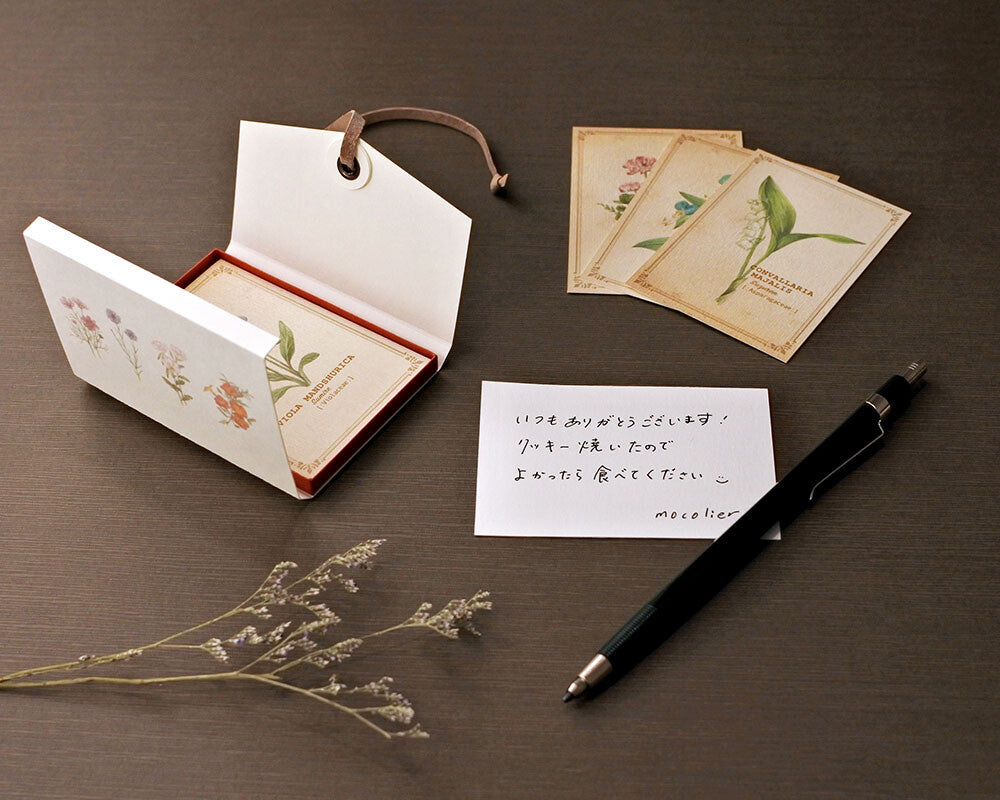 VIOLA MANDSHURICA
Sumire
[Violaceae]
CONVALLARIA
MAJALIS
[Asparagaceae]
いつもありがとうございます!
クッキー焼いたので
よかったら食べてください
mocolier